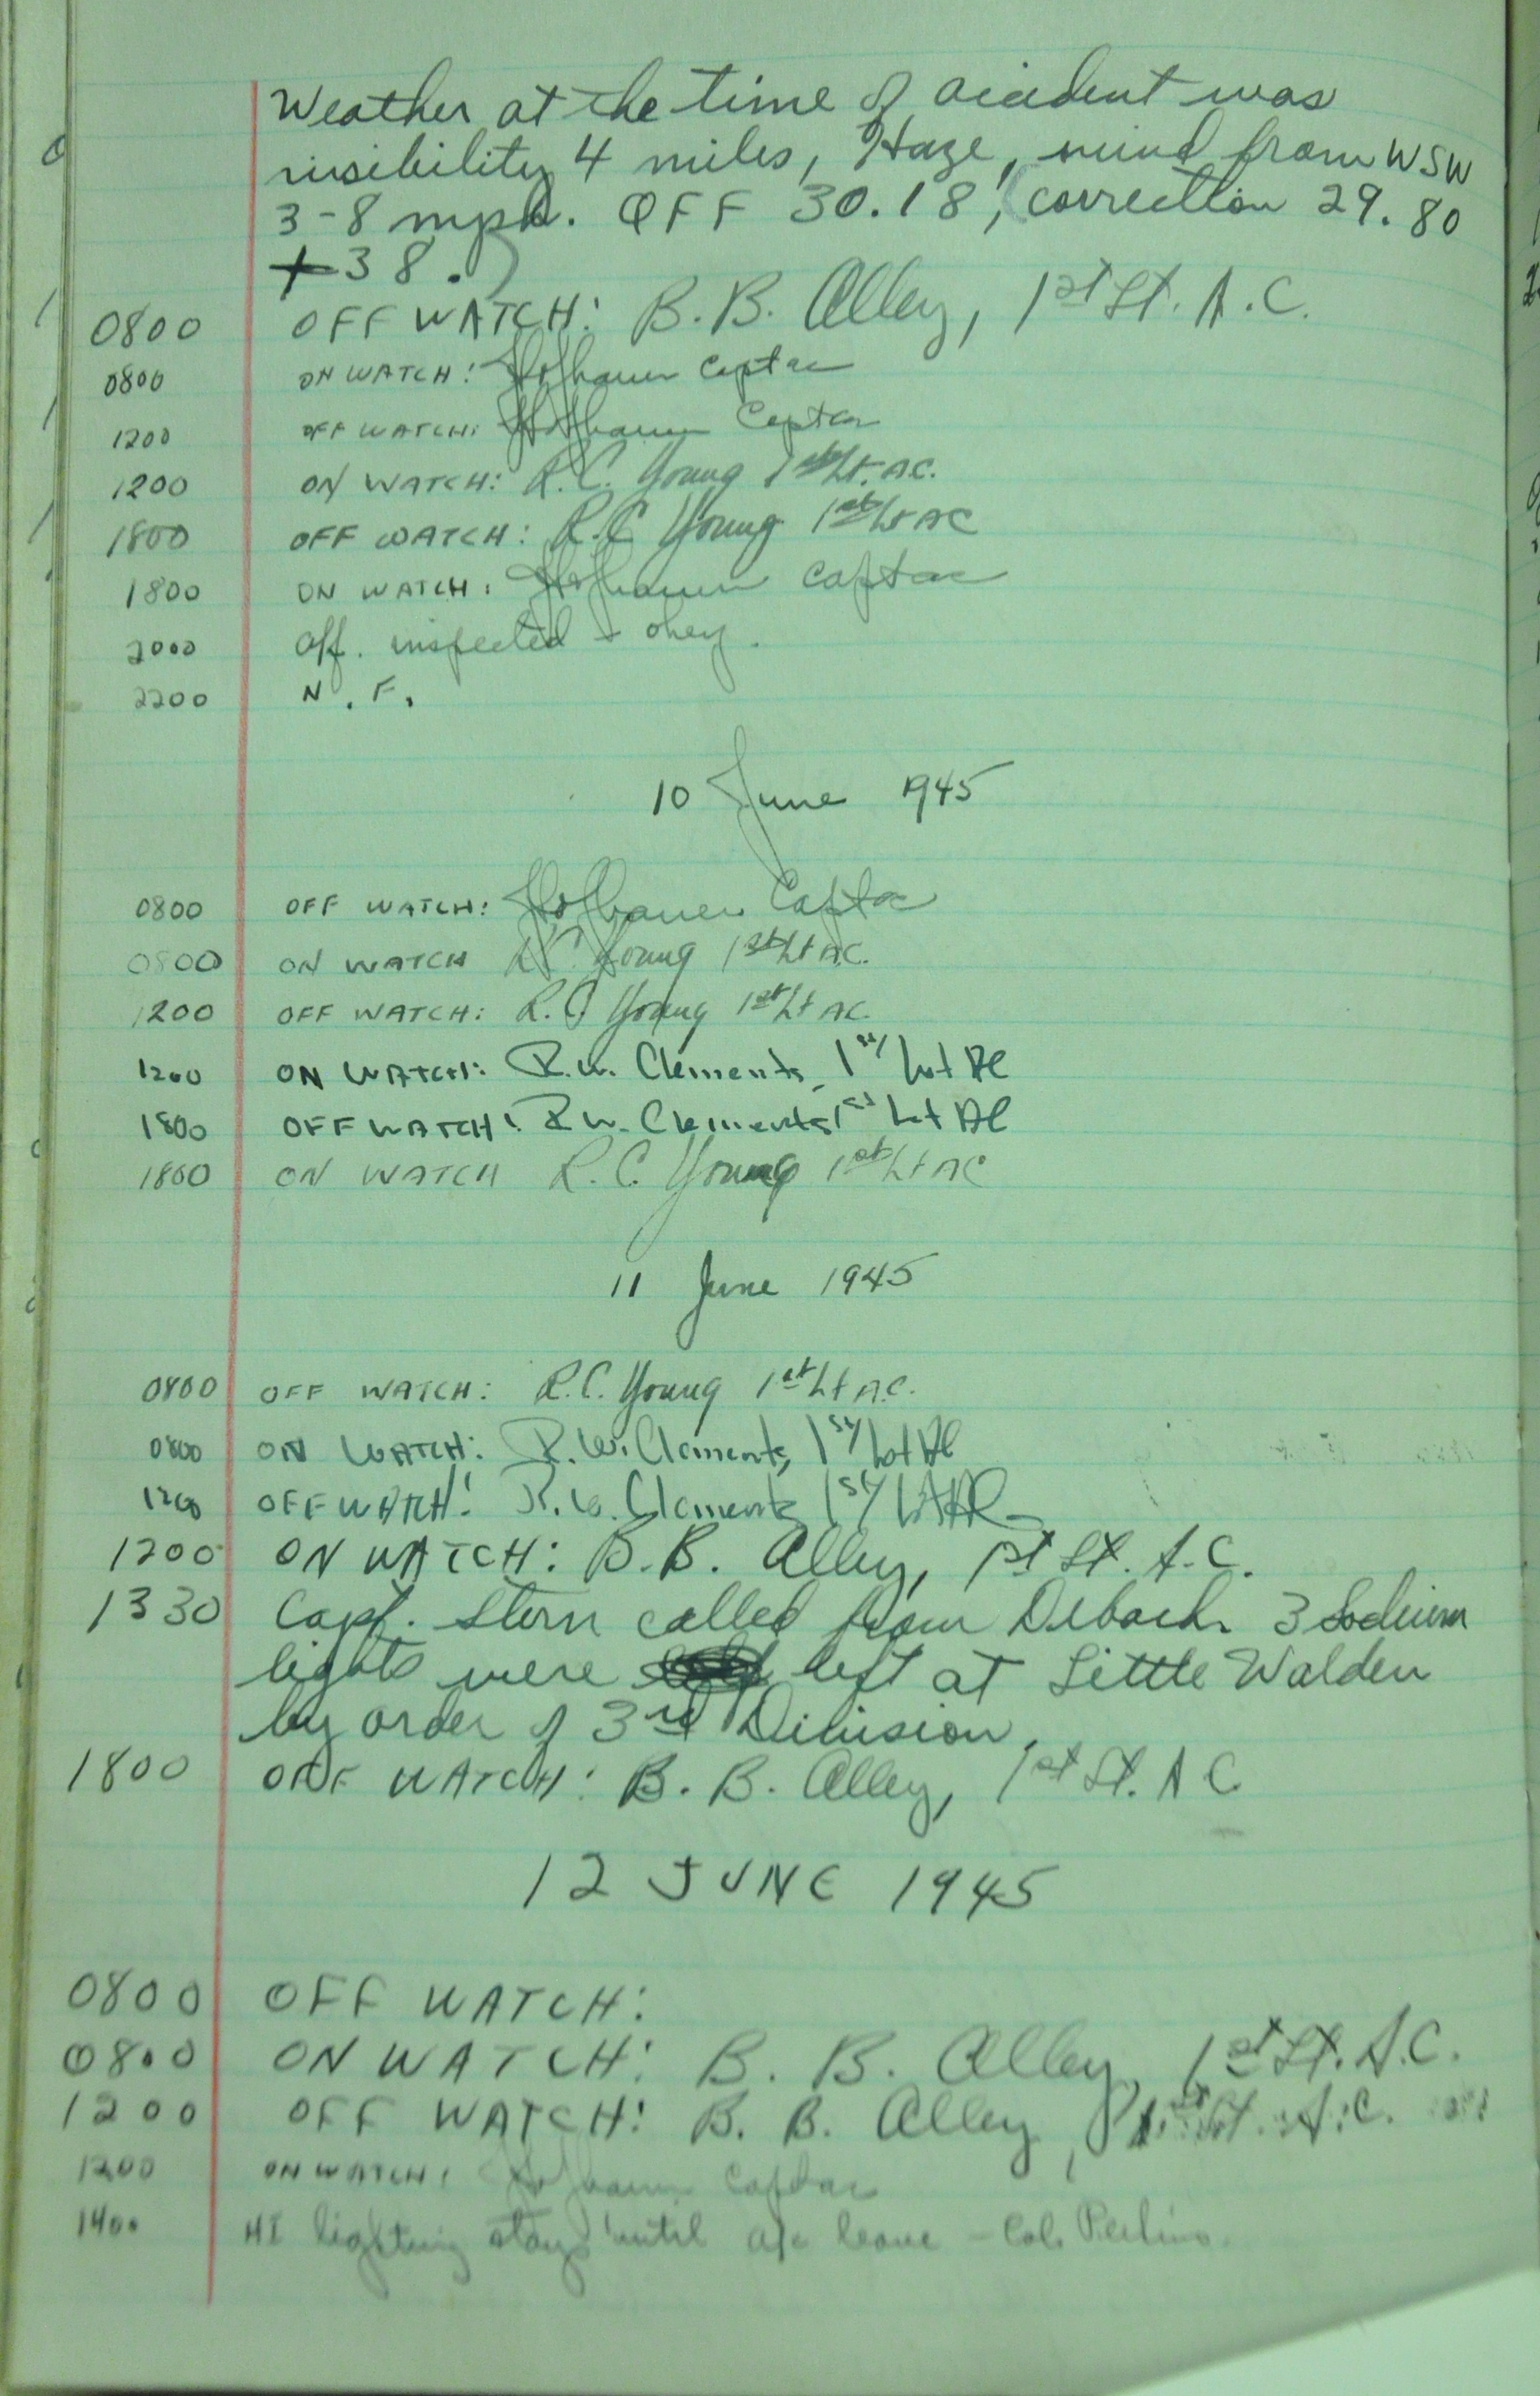 Weather at the time of accident was
visibility 4 miles, Haze, wind from WSW
3-8 mph. QFF 30.18, (correction 29.80
+38.)
0800 OFF WATCH: B. B. Alley, 1st Lt. A.C.
0800 ON WATCH: Capt ac
1200 OFF WATCH: Capt ac
1200 ON WATCH: R.C. Young 1st Lt. AC.
1800 OFF WATCH: R.C Young 1st Lt AC
1800 ON WATCH: Capt ac
2000 inspected - okey.
2200 N.F.
10 June 1945
0800 OFF WATCH: Capt ac
0800 ON WATCH R.C. Young 1st Lt AC.
1200 OFF WATCH: R.C Young 1st Lt AC.
1200 ON WATCH: R.W. Clements, 1st Lt AC
1800 OFF WATCH: R.W. Clements 1st Lt AC
1800 ON WATCH R.C. Young 1st Lt AC
11 June 1945
0800 OFF WATCH: R.C. Young 1st Lt A.C.
0800 ON WATCH: R.W. Clements, 1st Lt AC
1200 OFF WATCH: R.W. Clements 1st Lt AC
1200 ON WATCH: B.B. Alley, 1st Lt. A.C.
1330 Capt. Stern called from Debach. 3 Sodium
lights were left at Little Walden
by order of 3rd Division.
1800 OFF WATCH: B. B. Alley, 1st Lt. A C
12 JUNE 1945
0800 OFF WATCH:
0800 ON WATCH: B. B. Alley, 1st Lt. A.C.
1200 OFF WATCH: B. B. Alley, 1st Lt. A.C.
1200 ON WATCH: Capt ac
1400 HI lighting stays until a/c leave - Col.